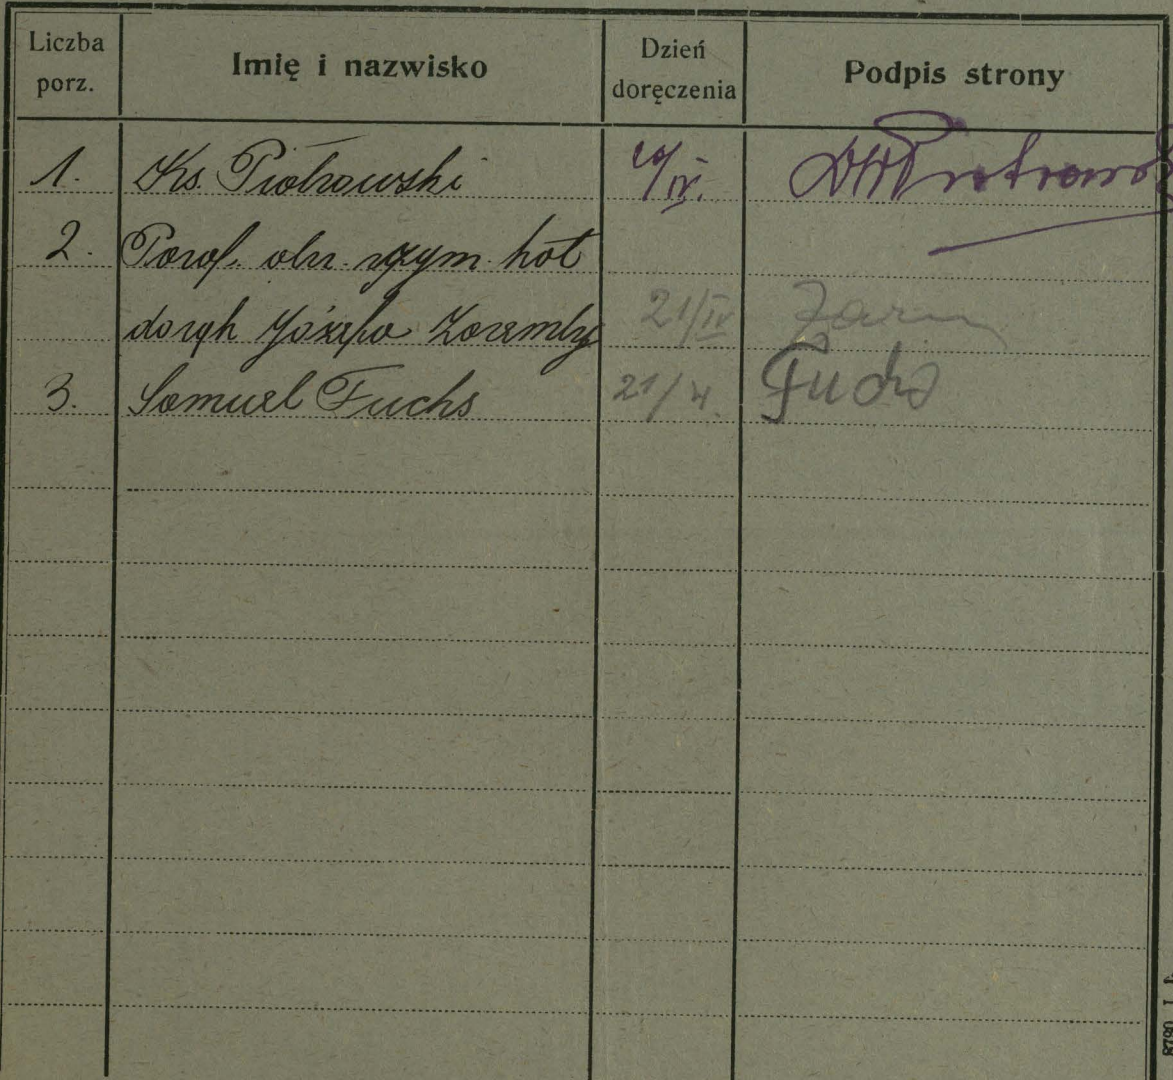 Liczba porz. Imię i nazwisko Dzień doręczenia Podpis strony
1. Ks. Piotrowski 20/IV.
2. Paraf. obrz. rzym kat
do rąk Józefa Zaremby 21/IV
3. Samuel Fuchs 21/4. Fuchs